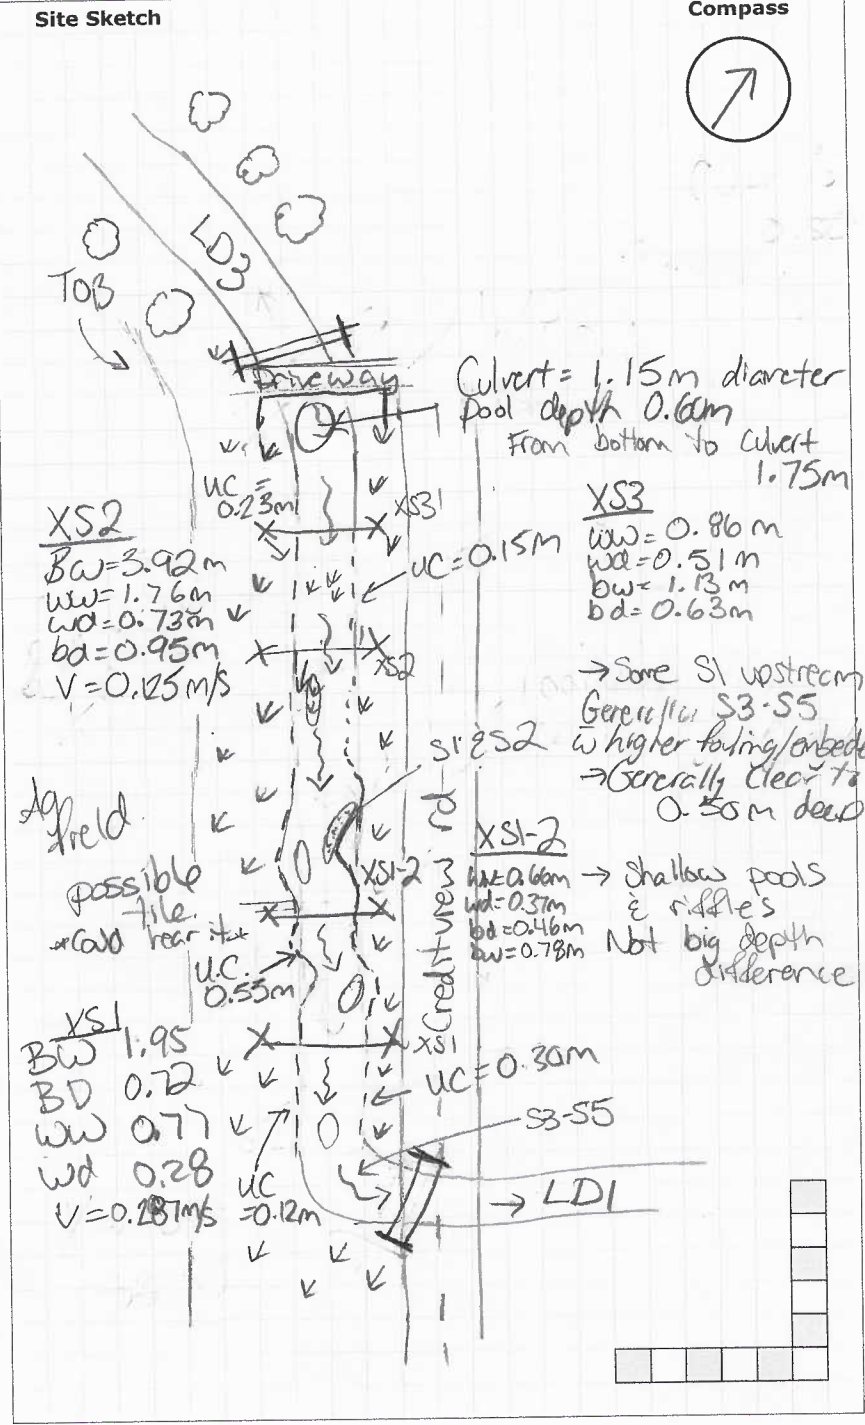 Site Sketch
Compass
LD3
TOB
Driveway
Culvert = 1.15m diameter
pool depth 0.60m
From bottom to culvert
1.75m
UC =
0.23m
XS3
XS2
BW=3.92m
WW=1.76m
wd=0.73m
bd=0.95m
V=0.125m/s
UC=0.15m
XS3
WW=0.86m
wd=0.51m
bw=1.13m
bd=0.63m
XS2
→Some S1 upstream
Generally S3-S5
w higher
→Generally Clear to
0.50m deep
S1 & S2
Ag
field
possible
tile
*could hear it*
XS1-2
XS1-2
ww=0.66m
wd=0.37m
bd=0.46m
bw=0.78m
→ Shallow pools
& riffles
Not big depth
difference
U.C.
0.55m
Creditview rd
XS1
BW 1.95
BD 0.72
WW 0.77
Wd 0.28
V=0.287m/s
XS1
UC=0.30m
S3-S5
UC
=0.12m
→ LD1